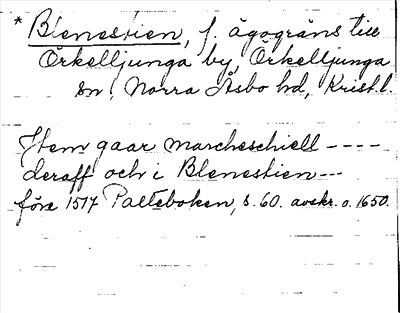 * Blenestien, f. ägogräns till
Örkelljunga by, Örkelljunga
sn, Norra Åsbo hd, Krist. l.
Item gaar marcheschiell ----
deraff och i Blenestien---
före 1517 Palteboken, s. 60. avskr. o. 1650.